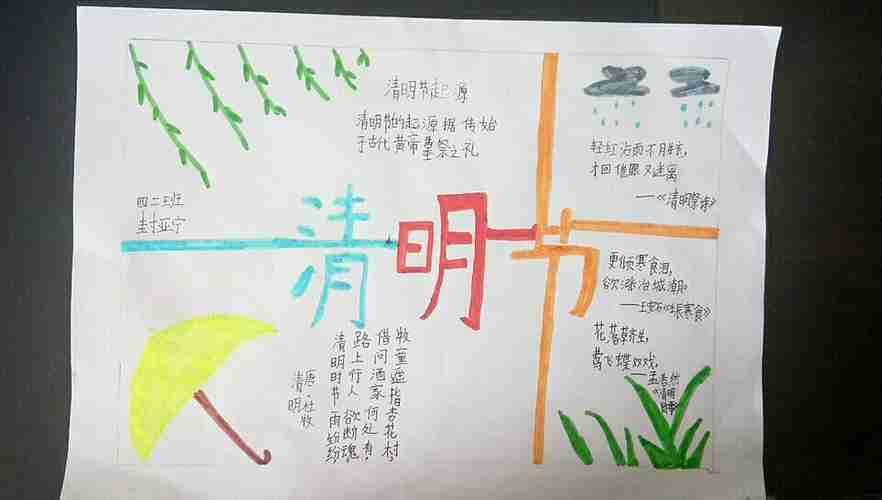 清明节起源
清明节的起源据传始
于古代黄帝墓祭之礼
四二班
封亚宁
清明节
轻红沾雨不胜
才回催眼又迷离
——《清明
更倾寒食泪,
欲涨冶城潮。
寒食》
花落草齐生,
莺飞蝶双戏,
——孟浩然
《清明
清明时节雨纷纷
路上行人欲断魂
借问酒家何处有,
牧童遥指杏花村
唐·杜牧
清明